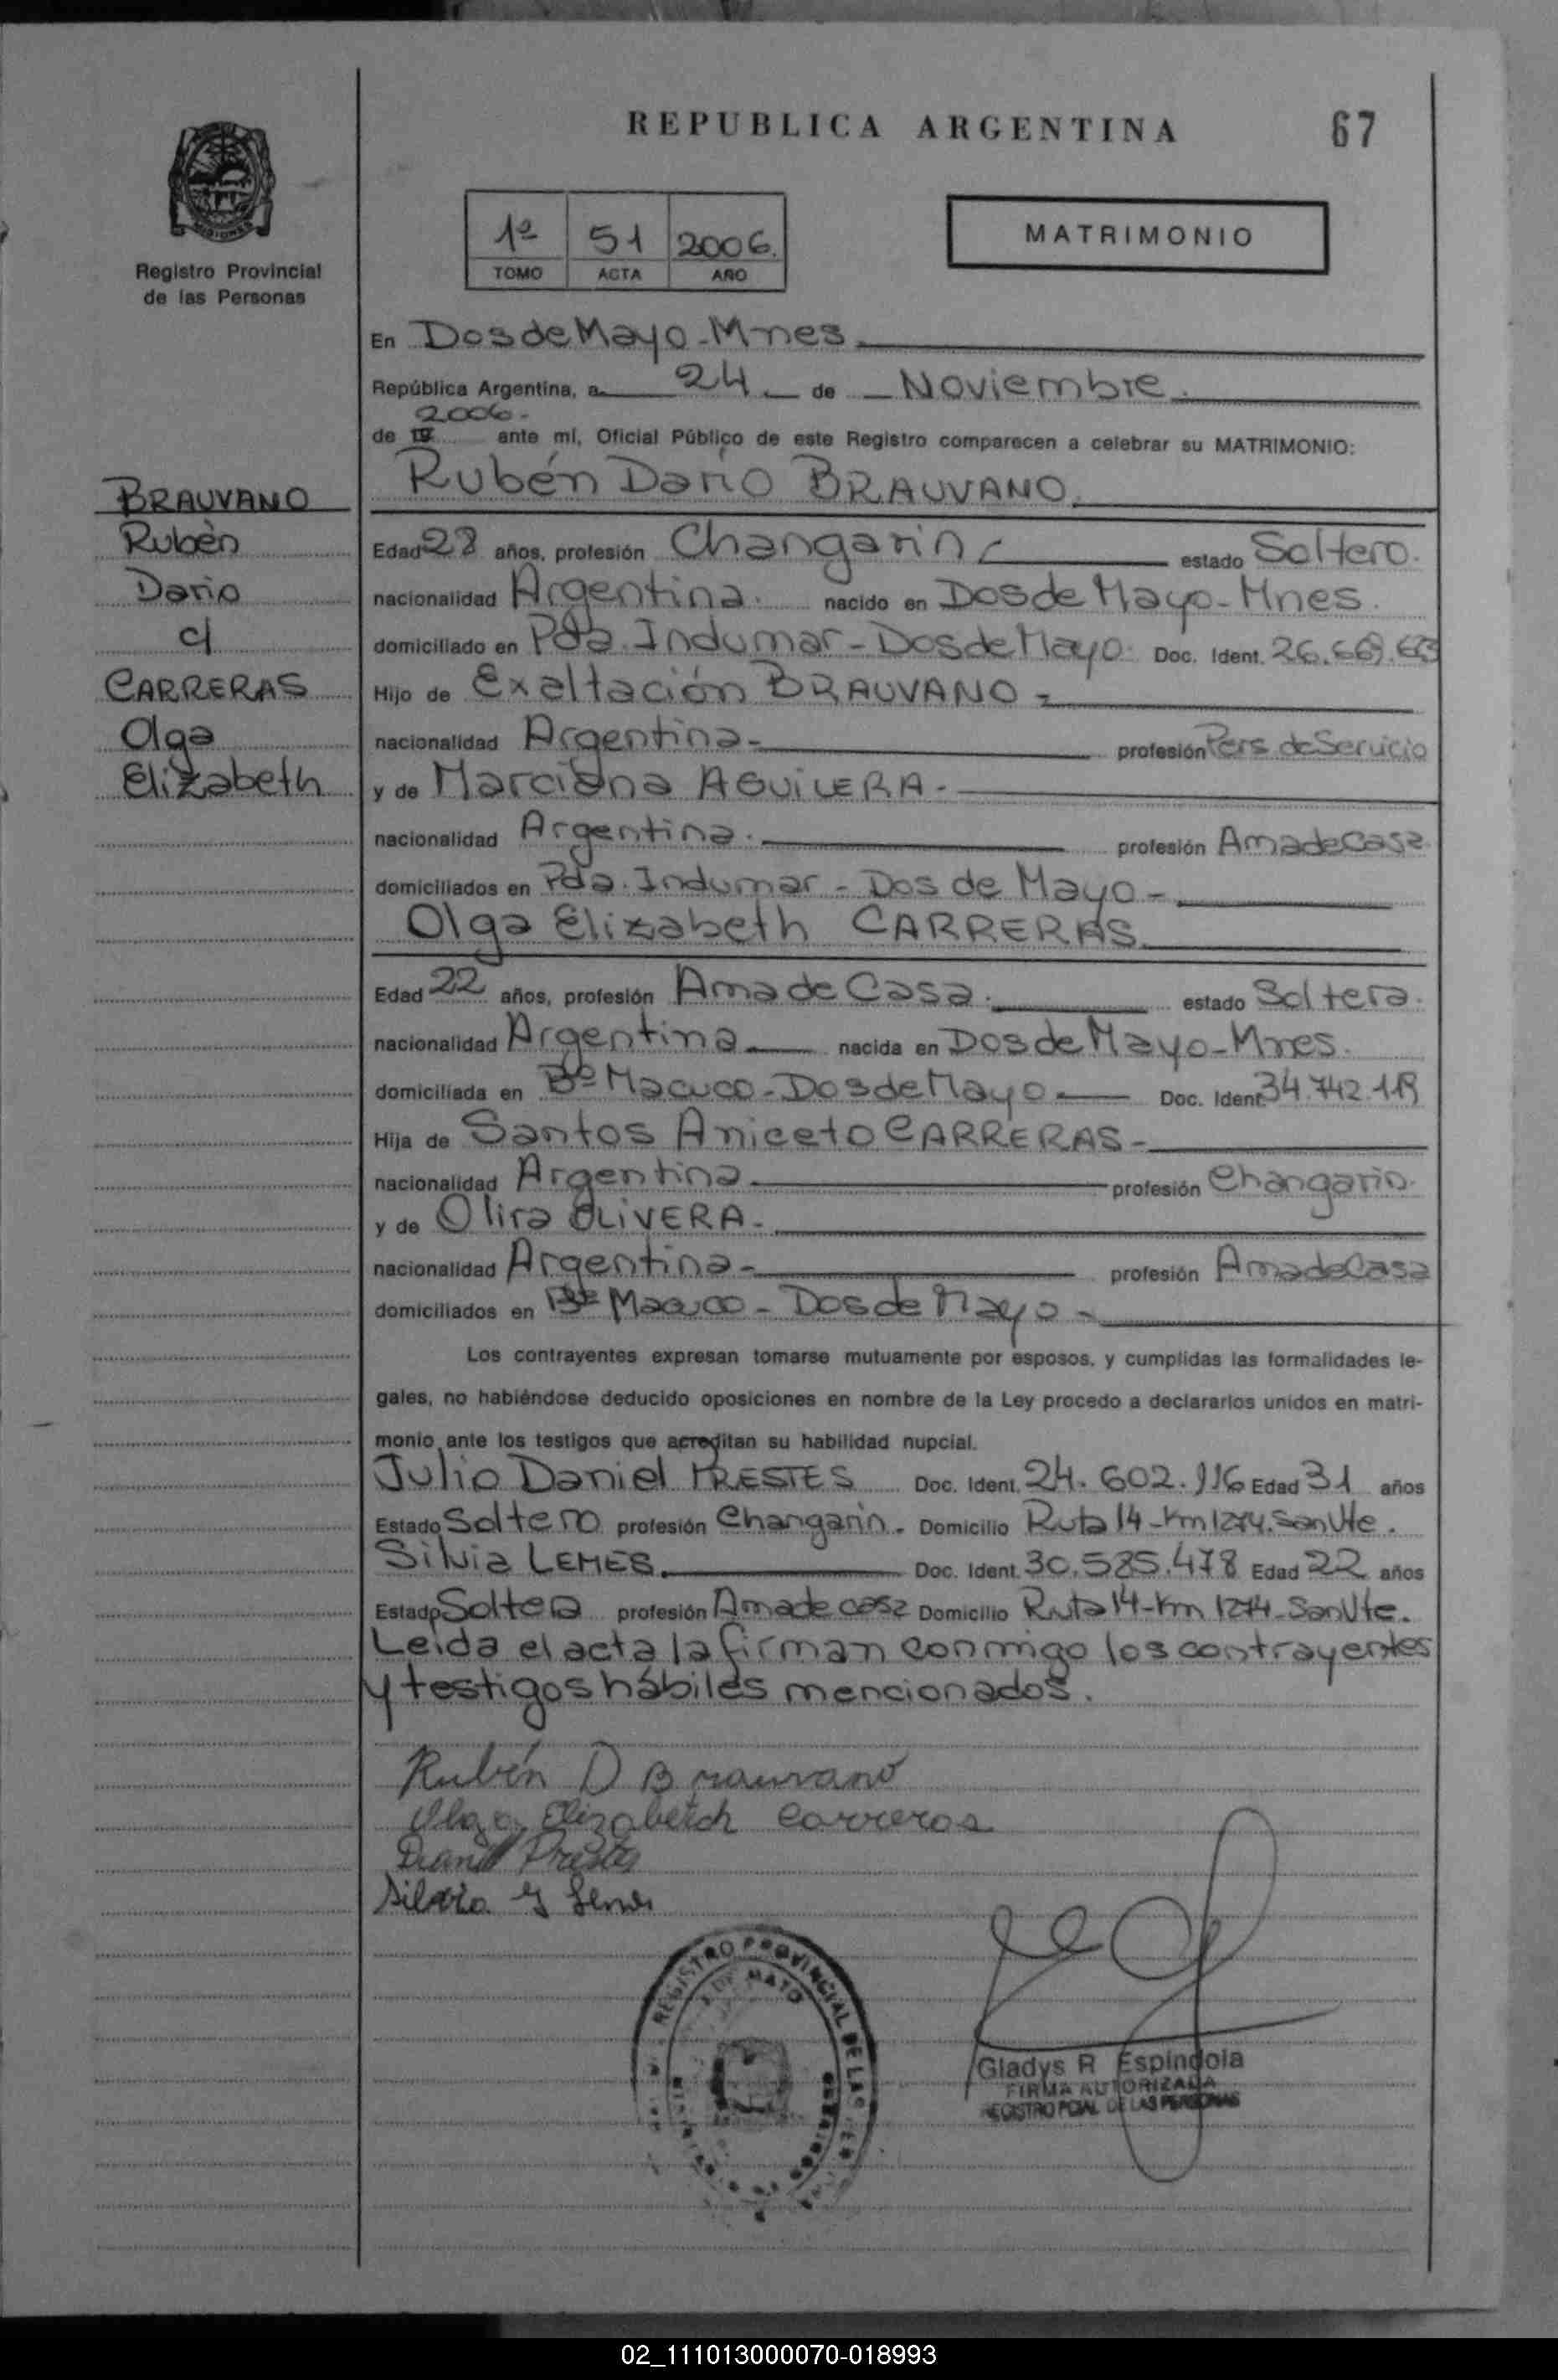 REPUBLICA ARGENTINA
67
MISIONES
Registro Provincial
de las Personas
1º 51 2006.
TOMO ACTA AÑO
MATRIMONIO
En Dos de Mayo - Mnes
República Argentina, a 24 de Noviembre.
2006-
de 19 ante mí, Oficial Público de este Registro comparecen a celebrar su MATRIMONIO:
Rubén Dario BRAUVANO.
BRAUVANO
Rubén
Dario
c/
CARRERAS
Olga
Elizabeth
Edad 28 años, profesión Changarin estado Soltero.
nacionalidad Argentina. nacido en Dos de Mayo - Mnes.
domiciliado en Pda. Indumar - Dos de Mayo. Doc. Ident. 26.669.
Hijo de Exaltación BRAUVANO -
nacionalidad Argentina - profesión Pers. de Servicio
y de Marciana AGUILERA -
nacionalidad Argentina. profesión Ama de Casa
domiciliados en Pda. Indumar - Dos de Mayo -
Olga Elizabeth CARRERAS
Edad 22 años, profesión Ama de Casa. estado Soltera.
nacionalidad Argentina nacida en Dos de Mayo - Mnes.
domiciliada en Bº Macuco - Dos de Mayo Doc. Ident. 34.742.119
Hija de Santos Aniceto CARRERAS -
nacionalidad Argentina profesión Changarin.
y de Olira OLIVERA -
nacionalidad Argentina - profesión Ama de Casa
domiciliados en Bº Macuco - Dos de Mayo -
Los contrayentes expresan tomarse mutuamente por esposos, y cumplidas las formalidades le-
gales, no habiéndose deducido oposiciones en nombre de la Ley procedo a declararlos unidos en matri-
monio ante los testigos que acreditan su habilidad nupcial.
Julio Daniel PRESTES Doc. Ident. 24.602.116 Edad 31 años
Estado Soltero profesión Changarin. Domicilio Ruta 14 - Km 1274. San Vte.
Silvia LEMES. Doc. Ident. 30.585.478 Edad 22 años
Estado Soltera profesión Ama de casa Domicilio Ruta 14 - Km 1274 - San Vte.
Leida el acta la firman conmigo los contrayentes
y testigos hábiles mencionados.
Rubén D Brauvano
Olga Elizabetch Carreras
Daniel Prestes
Silvia Lemes
REGISTRO PROVINCIAL DE LAS
DE MAYO
Gladys R Espindola
FIRMA AUTORIZADA
REGISTRO PCIAL DE LAS PERSONAS
02_111013000070-018993